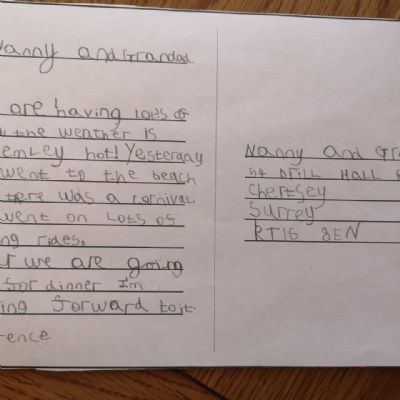 Nanny and Grandad
are having lots of
the weather is
emley hot! Yesterday
went to the beach
there was a cornival
went on lots of
ng rides.
we are going
for dinner I'm
ing forward to it
rence
Nanny and Gr
Drill Hall
Chertsey
Surrey
KT16 8EN